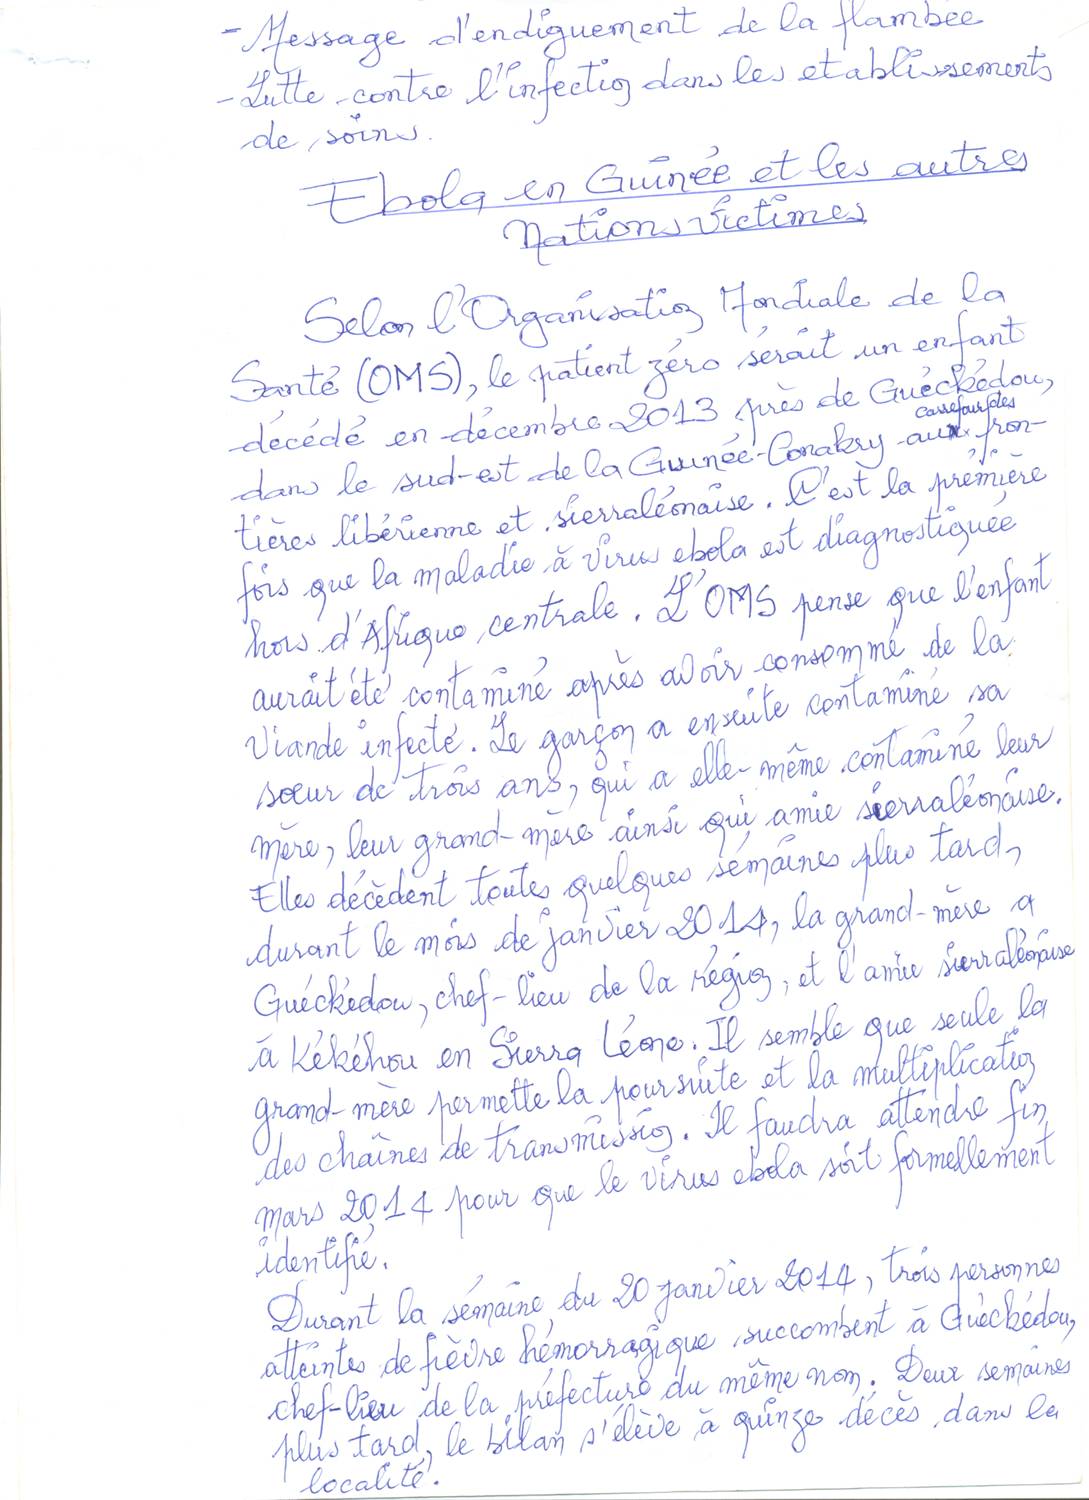 - Message d'endiguement de la flambée
- Lutte contre l'infection dans les etablissements
de soins.
Ebola en Guinée et les autres
Nations victimes
Selon l'Organisation Mondiale de la
Santé (OMS), le patient zéro sérait un enfant
décédé en décembre 2013 près de Guéckédou,
dans le sud-est de la Guinée-Conakry carrefour des fron-
tières libérienne et sierraléonaise. C'est la première
fois que la maladie à virus ebola est diagnostiquée
hors d'Afrique centrale. L'OMS pense que l'enfant
aurait été contaminé après avoir consommé de la
viande infecté. Le garçon a ensuite contaminé sa
sœur de trois ans, qui a elle-même contaminé leur
mère, leur grand-mère ainsi qui amie sierraléonaise.
Elles décèdent toutes quelques sémaines plus tard,
durant le mois de janvier 2014, la grand-mère a
Guéckédou, chef-lieu de la région, et l'amie sierraléonaise
à Kékéhou en Sierra Léone. Il semble que seule la
grand-mère permette la poursuite et la multiplication
des chaînes de transmission. Il faudra attendre fin
mars 2014 pour que le virus ebola soit formellement
identifié.
Durant la sémaine du 20 janvier 2014, trois personnes
atteintes de fièvre hémorragique succombent à Guéckédou,
chef-lieu de la préfecture du même nom. Deux semaines
plus tard, le bilan s'élève à quinze décès dans la
localité.